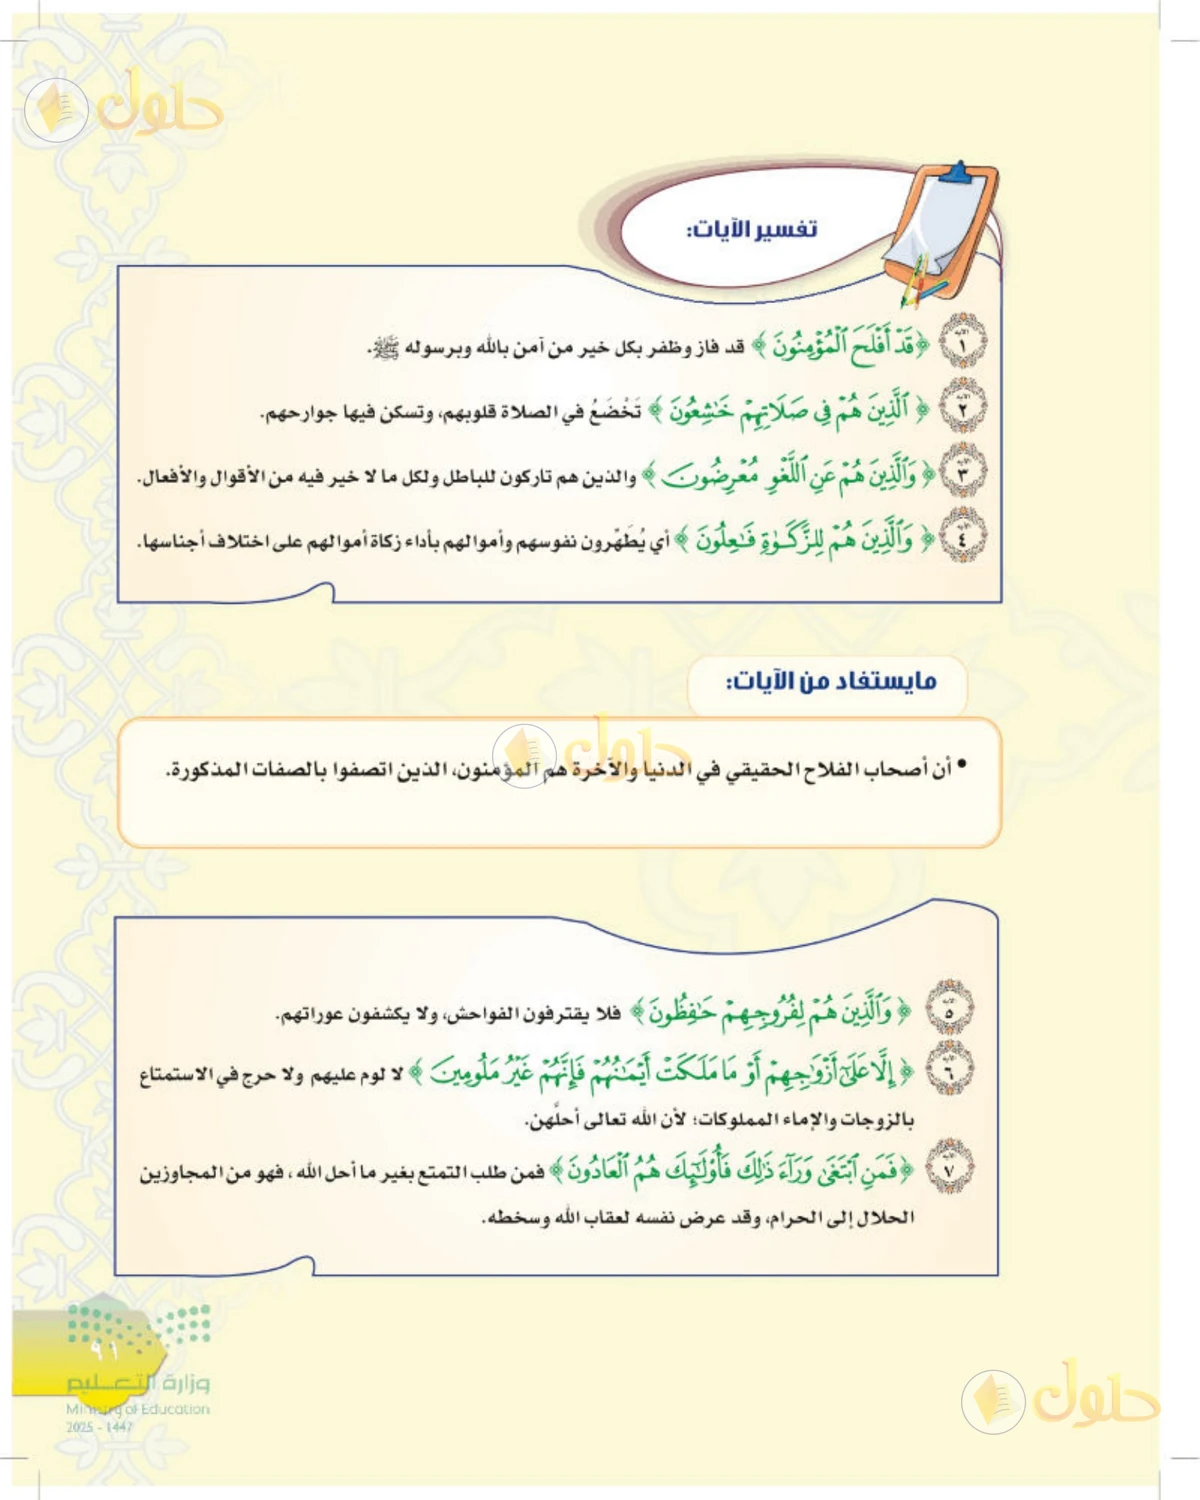 حلول
تفسير الآيات:
الآية ١ ﴿ قَدْ أَفْلَحَ ٱلْمُؤْمِنُونَ ﴾ قد فاز وظفر بكل خير من آمن بالله وبرسوله ﷺ.
الآية ٢ ﴿ ٱلَّذِينَ هُمْ فِى صَلَاتِهِمْ خَـٰشِعُونَ ﴾ تَخْضَعُ في الصلاة قلوبهم، وتسكن فيها جوارحهم.
الآية ٣ ﴿ وَٱلَّذِينَ هُمْ عَنِ ٱللَّغْوِ مُعْرِضُونَ ﴾ والذين هم تاركون للباطل ولكل ما لا خير فيه من الأقوال والأفعال.
الآية ٤ ﴿ وَٱلَّذِينَ هُمْ لِلزَّكَوٰةِ فَـٰعِلُونَ ﴾ أي يُطَهِّرون نفوسهم وأموالهم بأداء زكاة أموالهم على اختلاف أجناسها.
مايستفاد من الآيات:
حلول
• أن أصحاب الفلاح الحقيقي في الدنيا والآخرة هم المؤمنون، الذين اتصفوا بالصفات المذكورة.
الآية ٥ ﴿ وَٱلَّذِينَ هُمْ لِفُرُوجِهِمْ حَـٰفِظُونَ ﴾ فلا يقترفون الفواحش، ولا يكشفون عوراتهم.
الآية ٦ ﴿ إِلَّا عَلَىٰٓ أَزْوَٰجِهِمْ أَوْ مَا مَلَكَتْ أَيْمَـٰنُهُمْ فَإِنَّهُمْ غَيْرُ مَلُومِينَ ﴾ لا لوم عليهم ولا حرج في الاستمتاع
بالزوجات والإماء المملوكات؛ لأن الله تعالى أحلَّهن.
الآية ٧ ﴿ فَمَنِ ٱبْتَغَىٰ وَرَآءَ ذَٰلِكَ فَأُو۟لَـٰٓئِكَ هُمُ ٱلْعَادُونَ ﴾ فمن طلب التمتع بغير ما أحل الله ، فهو من المجاوزين
الحلال إلى الحرام، وقد عرض نفسه لعقاب الله وسخطه.
٩١
وزارة التعليم
Ministry of Education
2025 - 1447
حلول